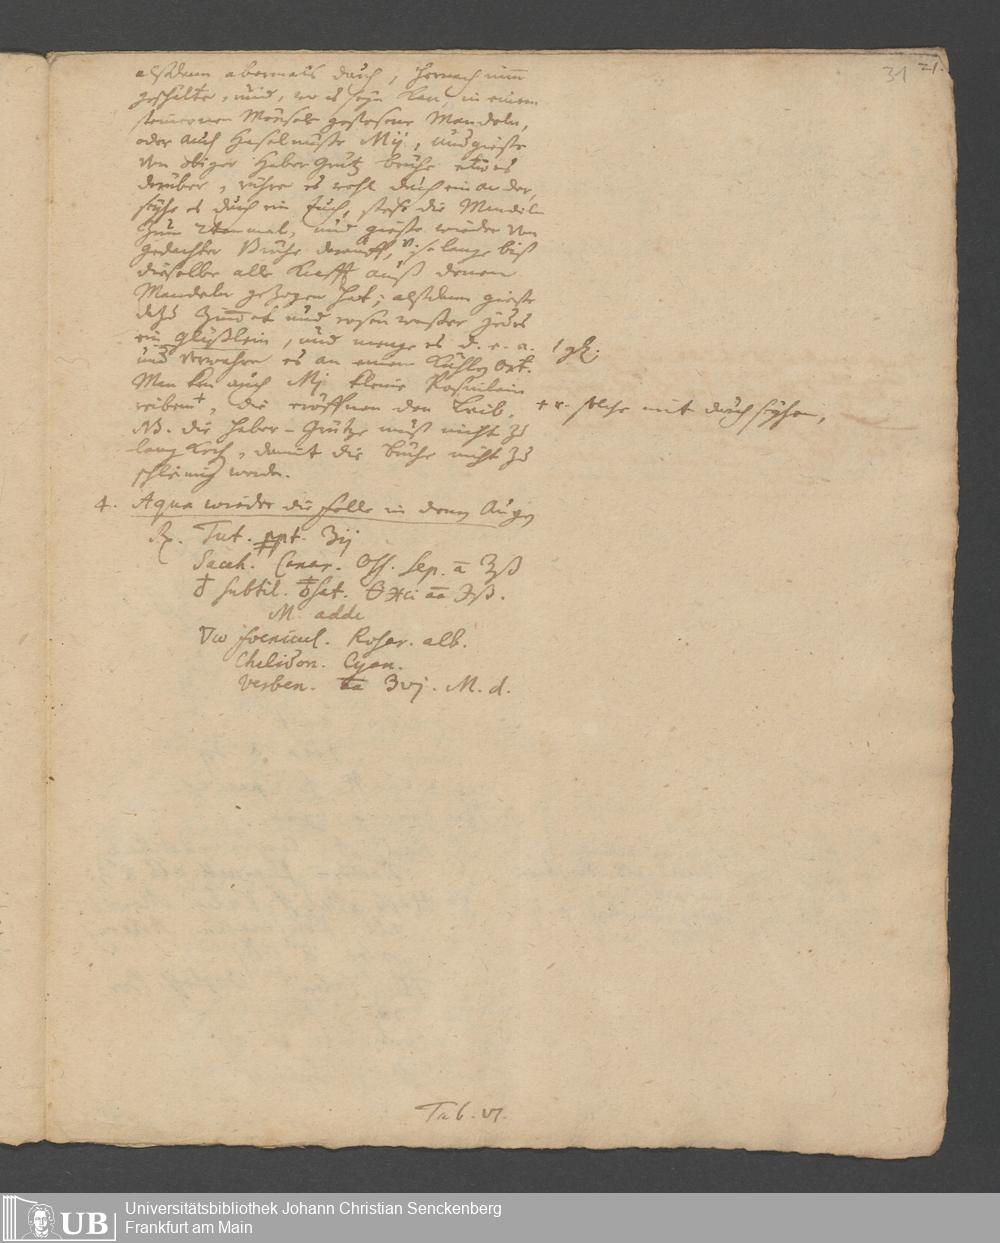 31 21.
alßdenn abermals durch, hernach nim
geschälte, und, wo es seyn kan, in einem
steinernen Mörsel gestoßene Mandeln,
oder auch Haselnüße Mij., und gieße
von obiger Haber Grütz brühe etwas
darüber, rühre es wohl durch ein ander,
seyhe es durch ein Tuch, stoße die Mandeln
zum 2ten mal, und gieße wieder von
gedachter Brühe darauff, so lange biß
dieselbe alle Krafft auß denen
Mandeln gezogen hat; alßdenn gieße
dazu Zimmet und rosen waßer jedes
ein gläßlein, und menge es d. e. a.
und verwahre es an einem kühlen Ort.
Man kan auch Mj kleine Rosinlein
reiben+, die eröffnen den Leib.
+ v. solche mit durch seyhen,
NB. die Haber-Grütze muß nicht zu
lang koch, damit die brühe nicht zu
schleimig werde.
4. Aqua wieder die felle in denen Augen
Rx. Tut. ppt. ʒij
Sacch. Canar. Oss. Sep. a ʒß
subtil. aa ʒß.
M. adde
foenicul. Rosar. alb.
Chelidon. Cyan.
Verben. aa ʒvj. M. d.
Tab. VI.
UB
Universitätsbibliothek Johann Christian Senckenberg
Frankfurt am Main